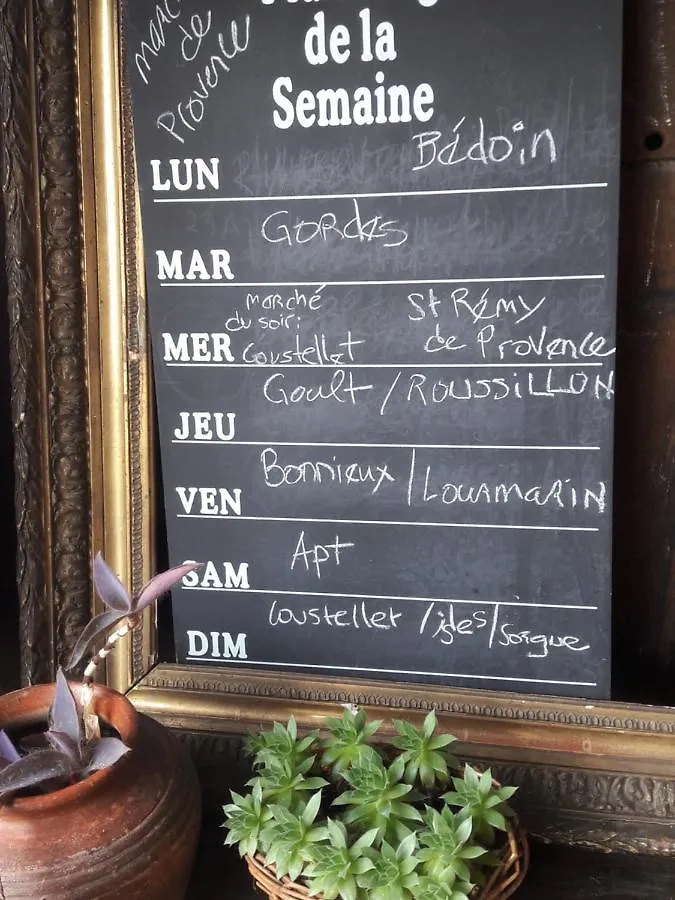 marché
de
Provence
de la
Semaine
LUN Bédoin
MAR Gordes
marché
du soir:
Coustellet
MER
St Rémy
de Provence
JEU Goult / ROUSSILLON
VEN Bonnieux / Lourmarin
SAM Apt
DIM Coustellet / isles / Sorgue